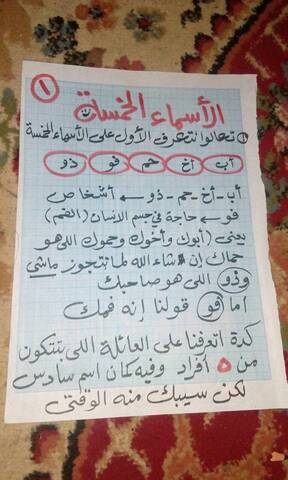 ١
الأسماء الخمسة
تعالوا نتعرف الأول على الأسماء الخمسة
أب أخ حم فو ذو
أب - أخ - حم - ذو ← أشخاص
فو ← حاجة في جسم الإنسان (الفم)
يعنى (أبوك وأخوك وحموك اللى هو
حماك إن شاء الله لما تتجوز ماشي
وذو اللى هو صاحبك
أما فو قولنا إنه فمك
كدة اتعرفنا على العائلة اللى بتتكون
من ٥ أفراد وفيه كمان اسم سادس
لكن سيبك منه الوقتى